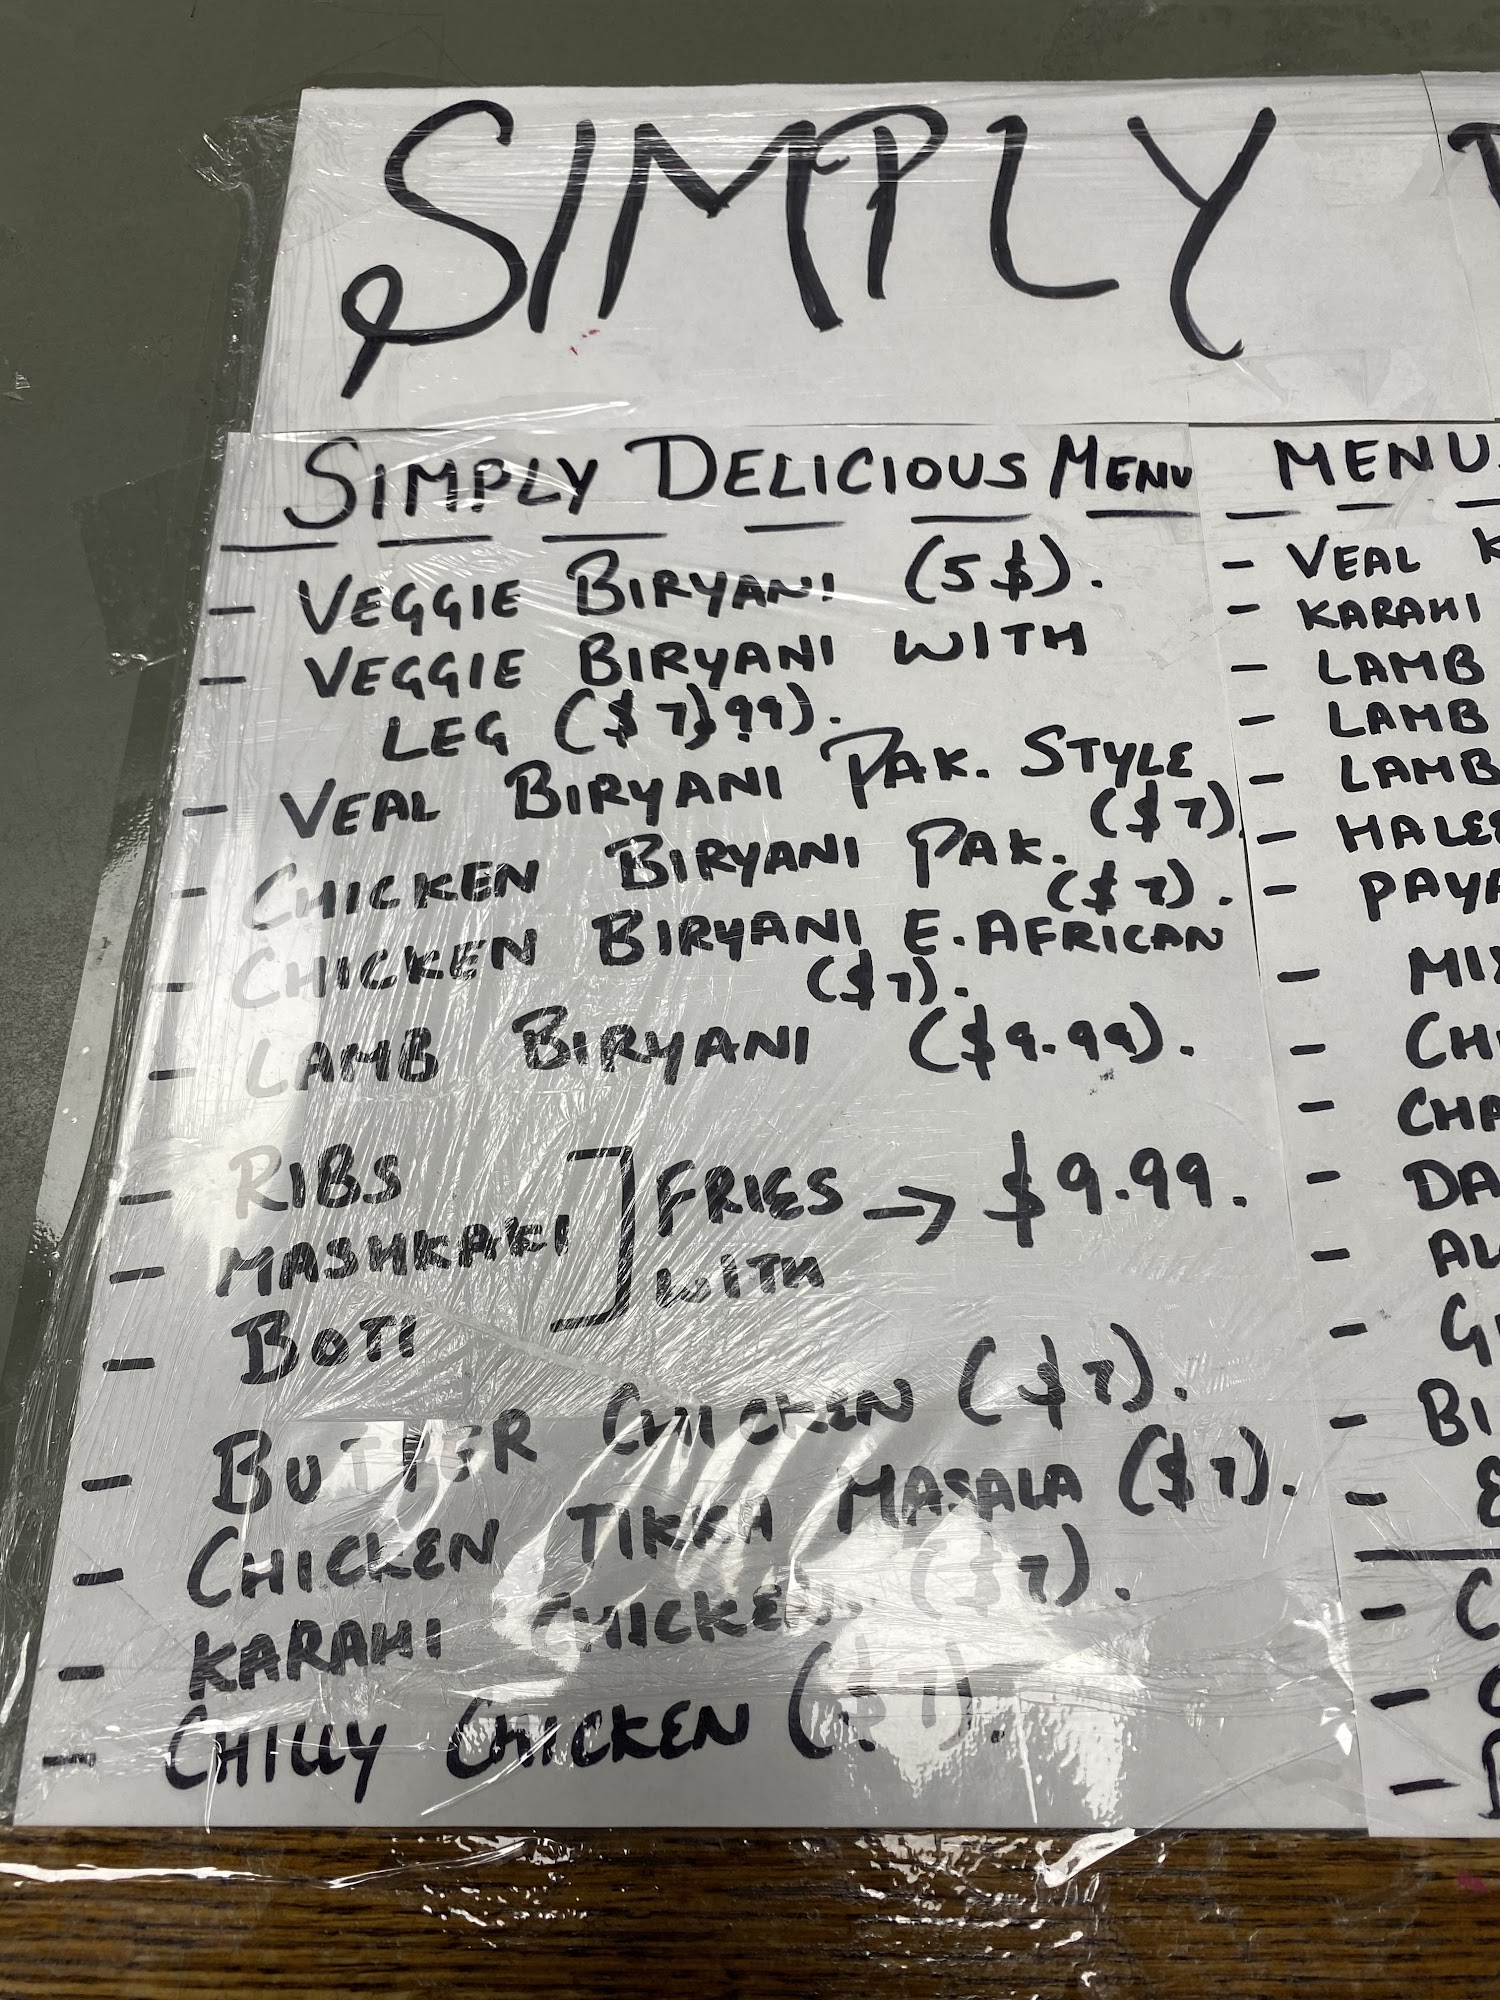 SIMPLY
SIMPLY DELICIOUS MENU
- VEGGIE BIRYANI (5$).
- VEGGIE BIRYANI WITH
LEG ($7.99).
- VEAL BIRYANI PAK. STYLE
($7).
- CHICKEN BIRYANI PAK.
($7).
- CHICKEN BIRYANI E. AFRICAN
($7).
- LAMB BIRYANI ($9.99).
- RIBS
- MASHKAKI
- BOTI
FRIES → $9.99.
WITH
- BUTTER CHICKEN ($7).
- CHICKEN TIKKA MASALA ($7).
- KARAHI CHICKEN. ($7).
- CHILLY CHICKEN ($7).
MENU
- VEAL
- KARAHI
- LAMB
- LAMB
- LAMB